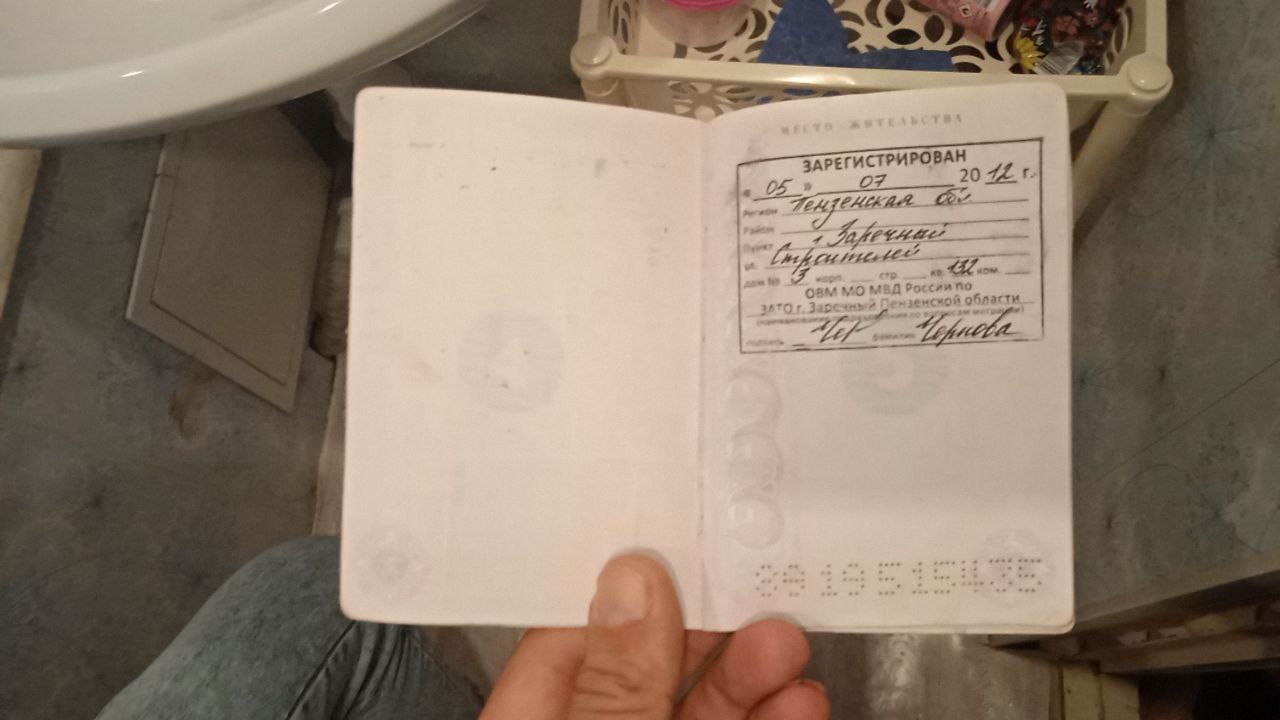 МЕСТО ЖИТЕЛЬСТВА
ЗАРЕГИСТРИРОВАН
« 05 » 07 20 12 г.
Регион Пензенская обл
Район
Пункт г Заречный
ул. Строителей
дом № 3 корп. стр. кв. 132 ком.
ОВМ МО МВД России по
ЗАТО г. Заречный Пензенской области
(наименование подразделения по вопросам миграции)
подпись Чер фамилия Чернова